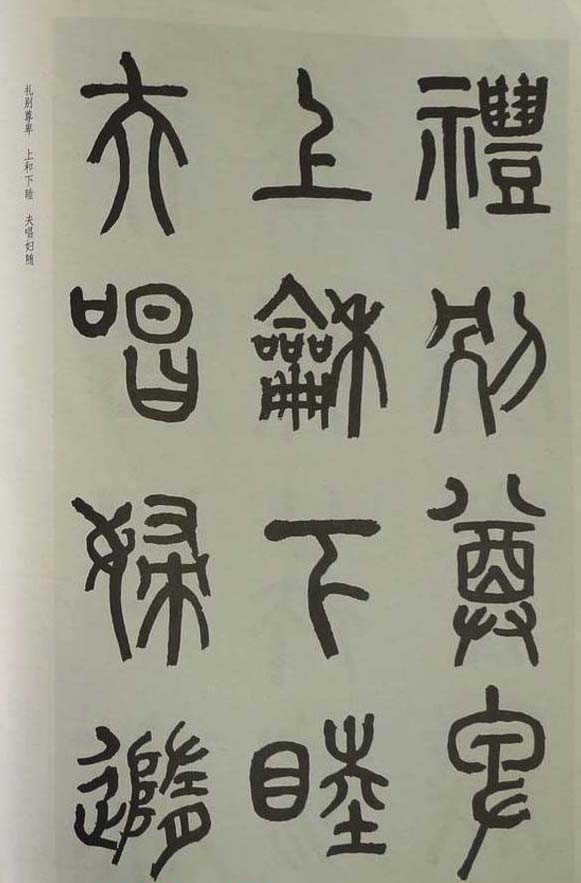 禮別尊卑
上龢下睦
夫唱婦隨
礼别尊卑 上和下睦 夫唱妇随